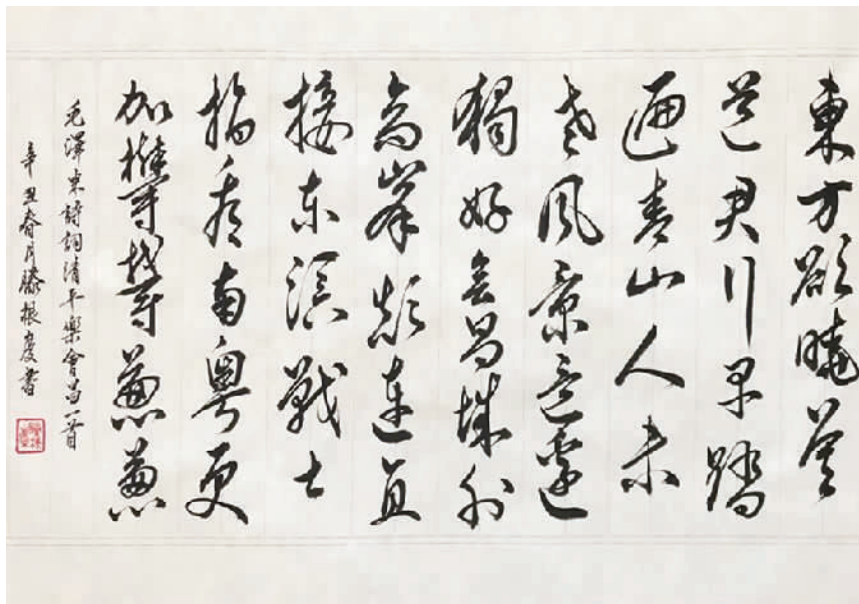 東方欲曉莫
道君行早踏
遍青山人未
老風景這邊
獨好會昌城外
高峯顛連直
接东溟戰士
指看南粵更
加鬱鬱蔥蔥
毛澤东詩詞清平樂會昌一首
辛丑春月滕根慶書